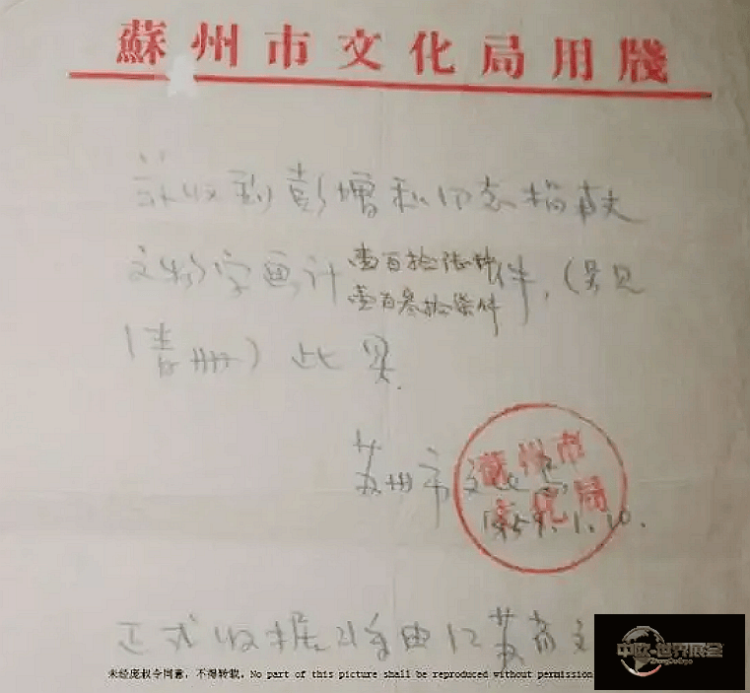 蘇州市文化局用牋
兹收到彭增和同志捐献
文物字画计壹百拾陆种
壹百叁拾柒件,(另见
清册)此具.
苏州市文化局
蘇州市
文化局
1959.1.10.
正式收据将由江苏省文
未经庞权令同意,不得转载, No part of this picture shall be reproduced without permission
中欧-世界展会